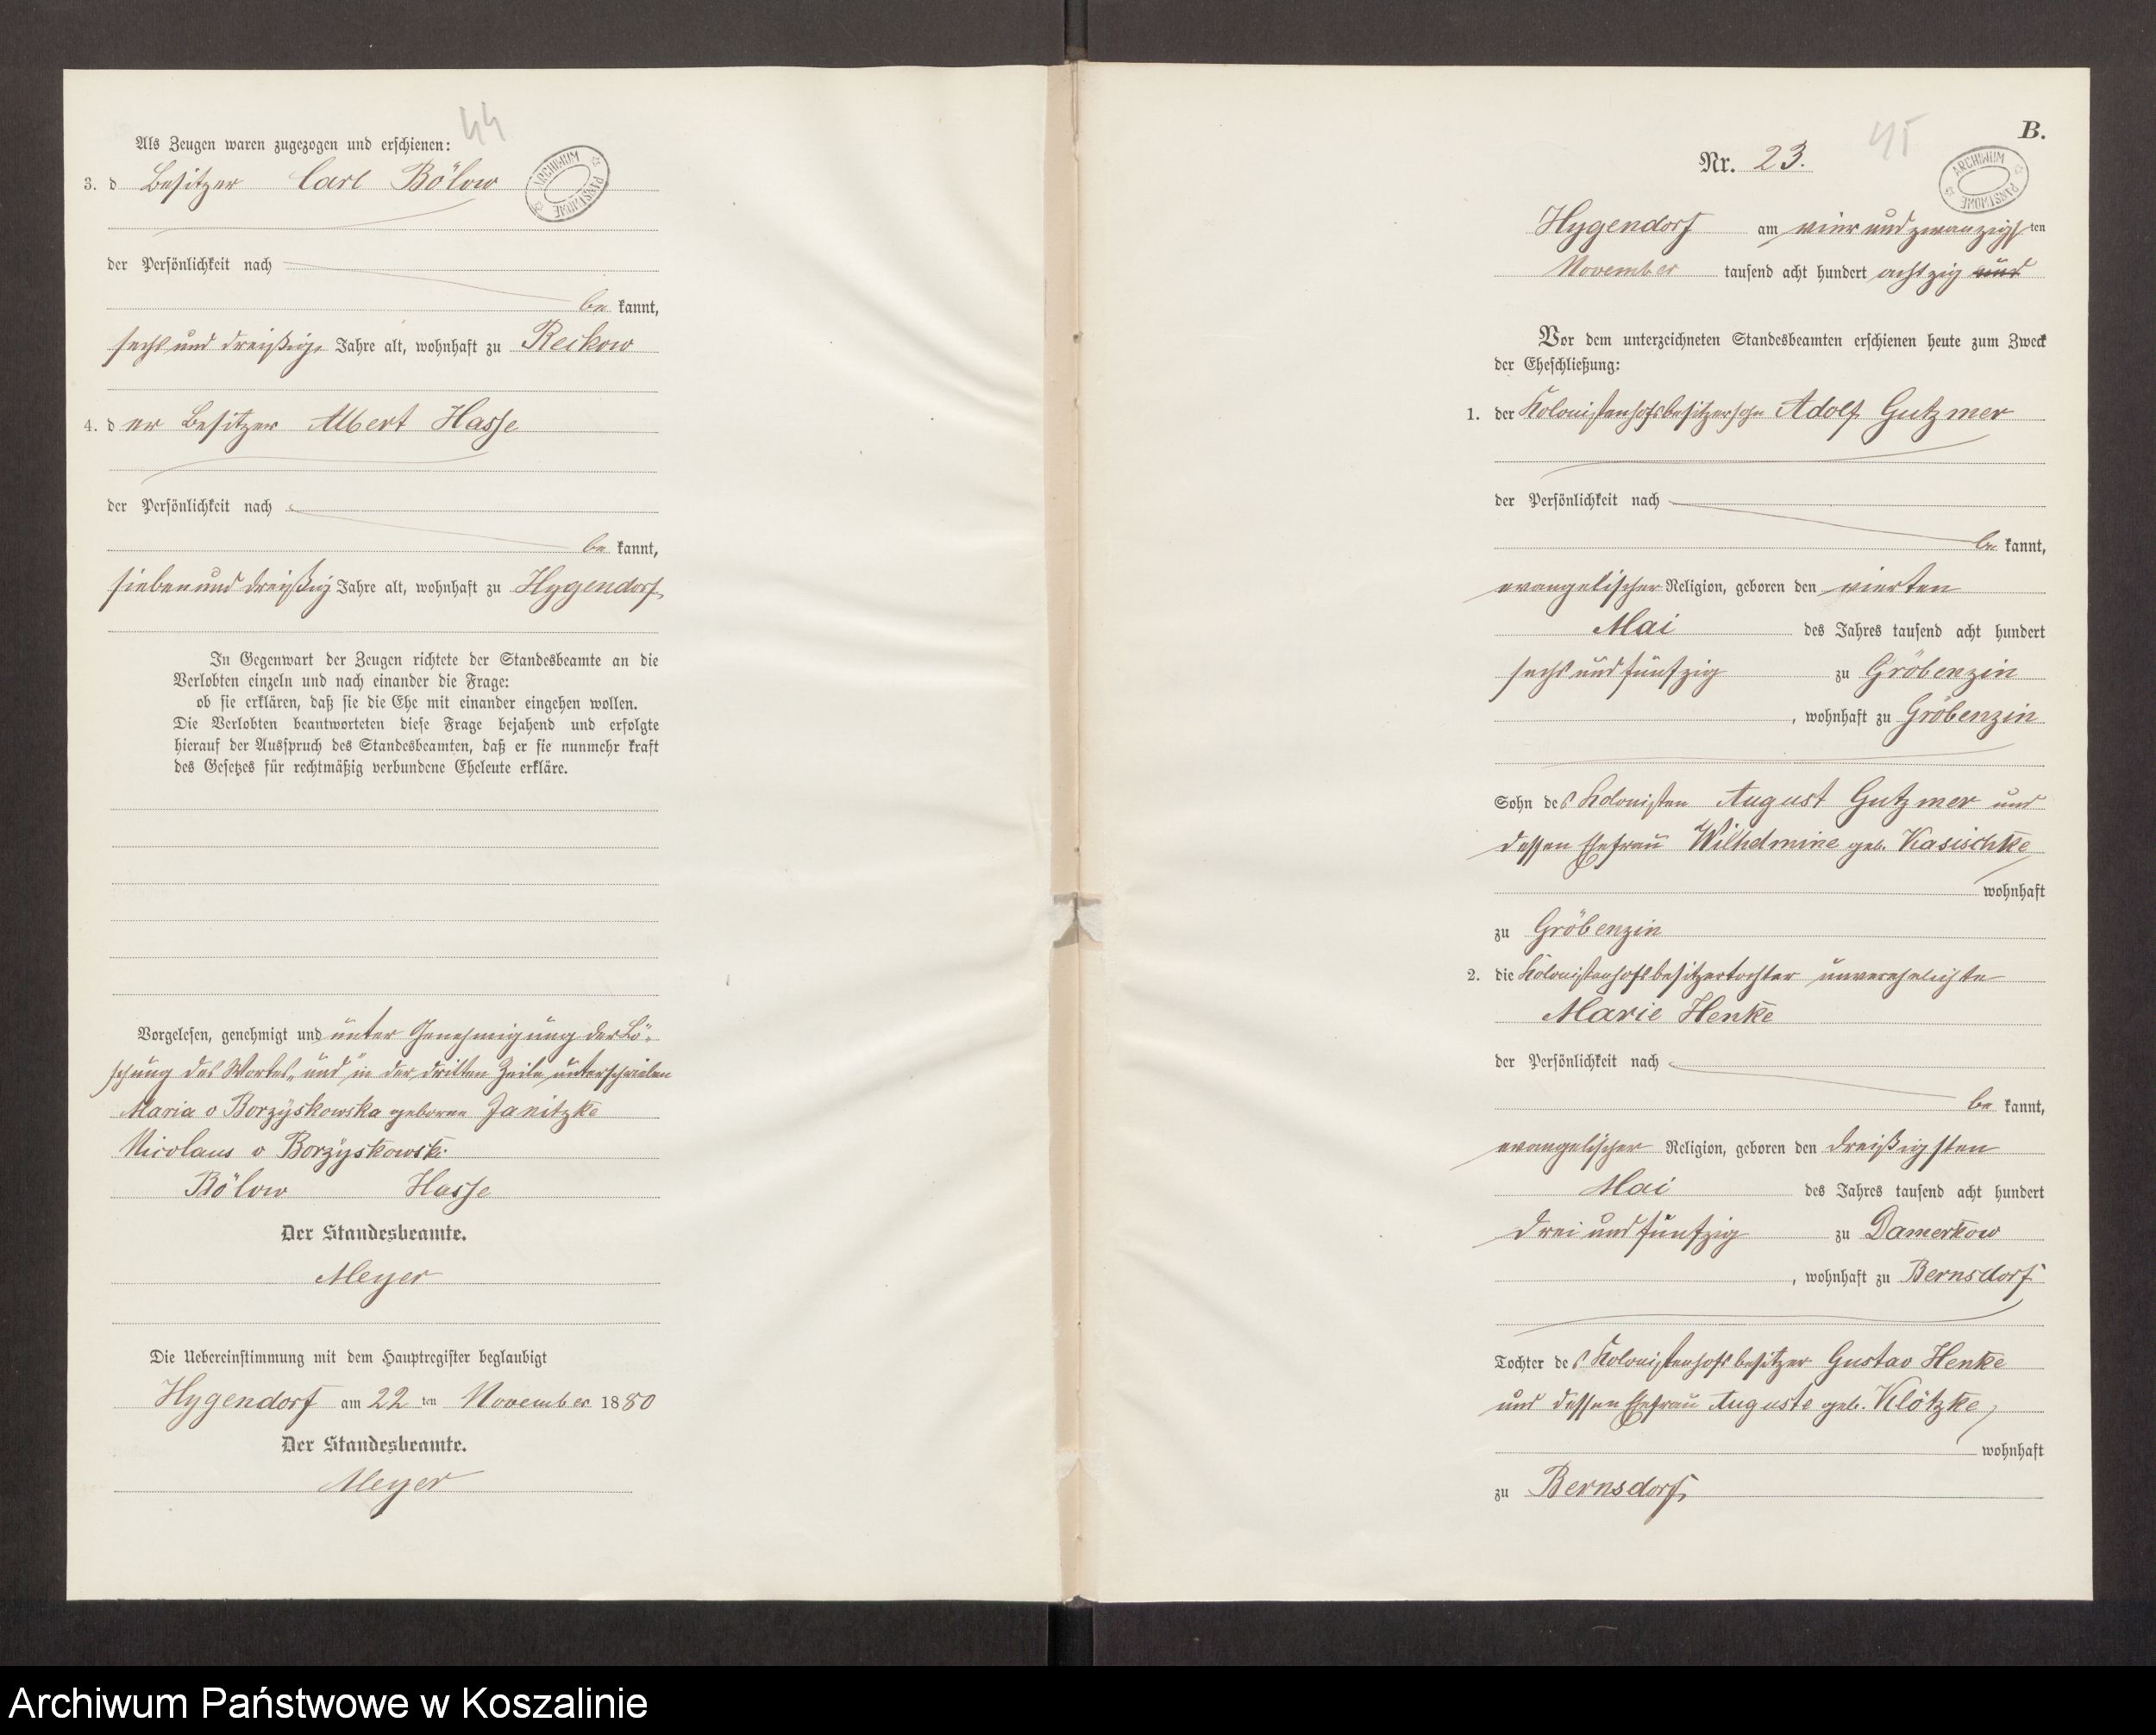 44
Als Zeugen waren zugezogen und erschienen:
3. d Besitzer Carl Bölow
ARCHIWUM PAŃSTWOWE
der Persönlichkeit nach
be kannt,
sechs und dreißig Jahre alt, wohnhaft zu Reckow
4. d er Besitzer Albert Hasse
der Persönlichkeit nach
be kannt,
sieben und dreißig Jahre alt, wohnhaft zu Hygendorf
In Gegenwart der Zeugen richtete der Standesbeamte an die
Verlobten einzeln und nach einander die Frage:
ob sie erklären, daß sie die Ehe mit einander eingehen wollen.
Die Verlobten beantworteten diese Frage bejahend und erfolgte
hierauf der Ausspruch des Standesbeamten, daß er sie nunmehr kraft
des Gesetzes für rechtmäßig verbundene Eheleute erkläre.
Vorgelesen, genehmigt und unter Genehmigung der Lö-
schung des Wortes „und" in der dritten Zeile unterschrieben
Maria v Borzyskowska geborene Janitzke
Nicolaus v Borzyskowski
Bölow Hasse
Der Standesbeamte.
Meyer
Die Uebereinstimmung mit dem Hauptregister beglaubigt
Hygendorf am 22 ten November 1880
Der Standesbeamte.
Meyer
45
B.
Nr. 23.
ARCHIWUM PAŃSTWOWE
Hygendorf am vier und zwanzigs ten
November tausend acht hundert achtzig und
Vor dem unterzeichneten Standesbeamten erschienen heute zum Zweck
der Eheschließung:
1. der Kolonistenhofsbesitzersohn Adolf Gutzmer
der Persönlichkeit nach
be kannt,
evangelischer Religion, geboren den vierten
Mai des Jahres tausend acht hundert
sechs und fünfzig zu Gröbenzin
, wohnhaft zu Gröbenzin
Sohn des Kolonisten August Gutzmer und
dessen Ehefrau Wilhelmine geb. Kasischke
wohnhaft
zu Gröbenzin
2. die Kolonistenhofsbesitzertochter unverehelichte
Marie Henke
der Persönlichkeit nach
be kannt,
evangelischer Religion, geboren den dreißigsten
Mai des Jahres tausend acht hundert
drei und fünfzig zu Damerkow
, wohnhaft zu Bernsdorf
Tochter des Kolonistenhofsbesitzer Gustav Henke
und dessen Ehefrau Auguste geb. Klötzke,
wohnhaft
zu Bernsdorf
Archiwum Państwowe w Koszalinie